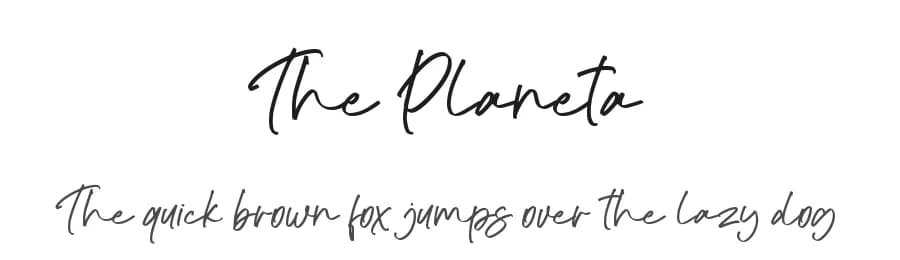 The Planeta
The quick brown fox jumps over the lazy dog